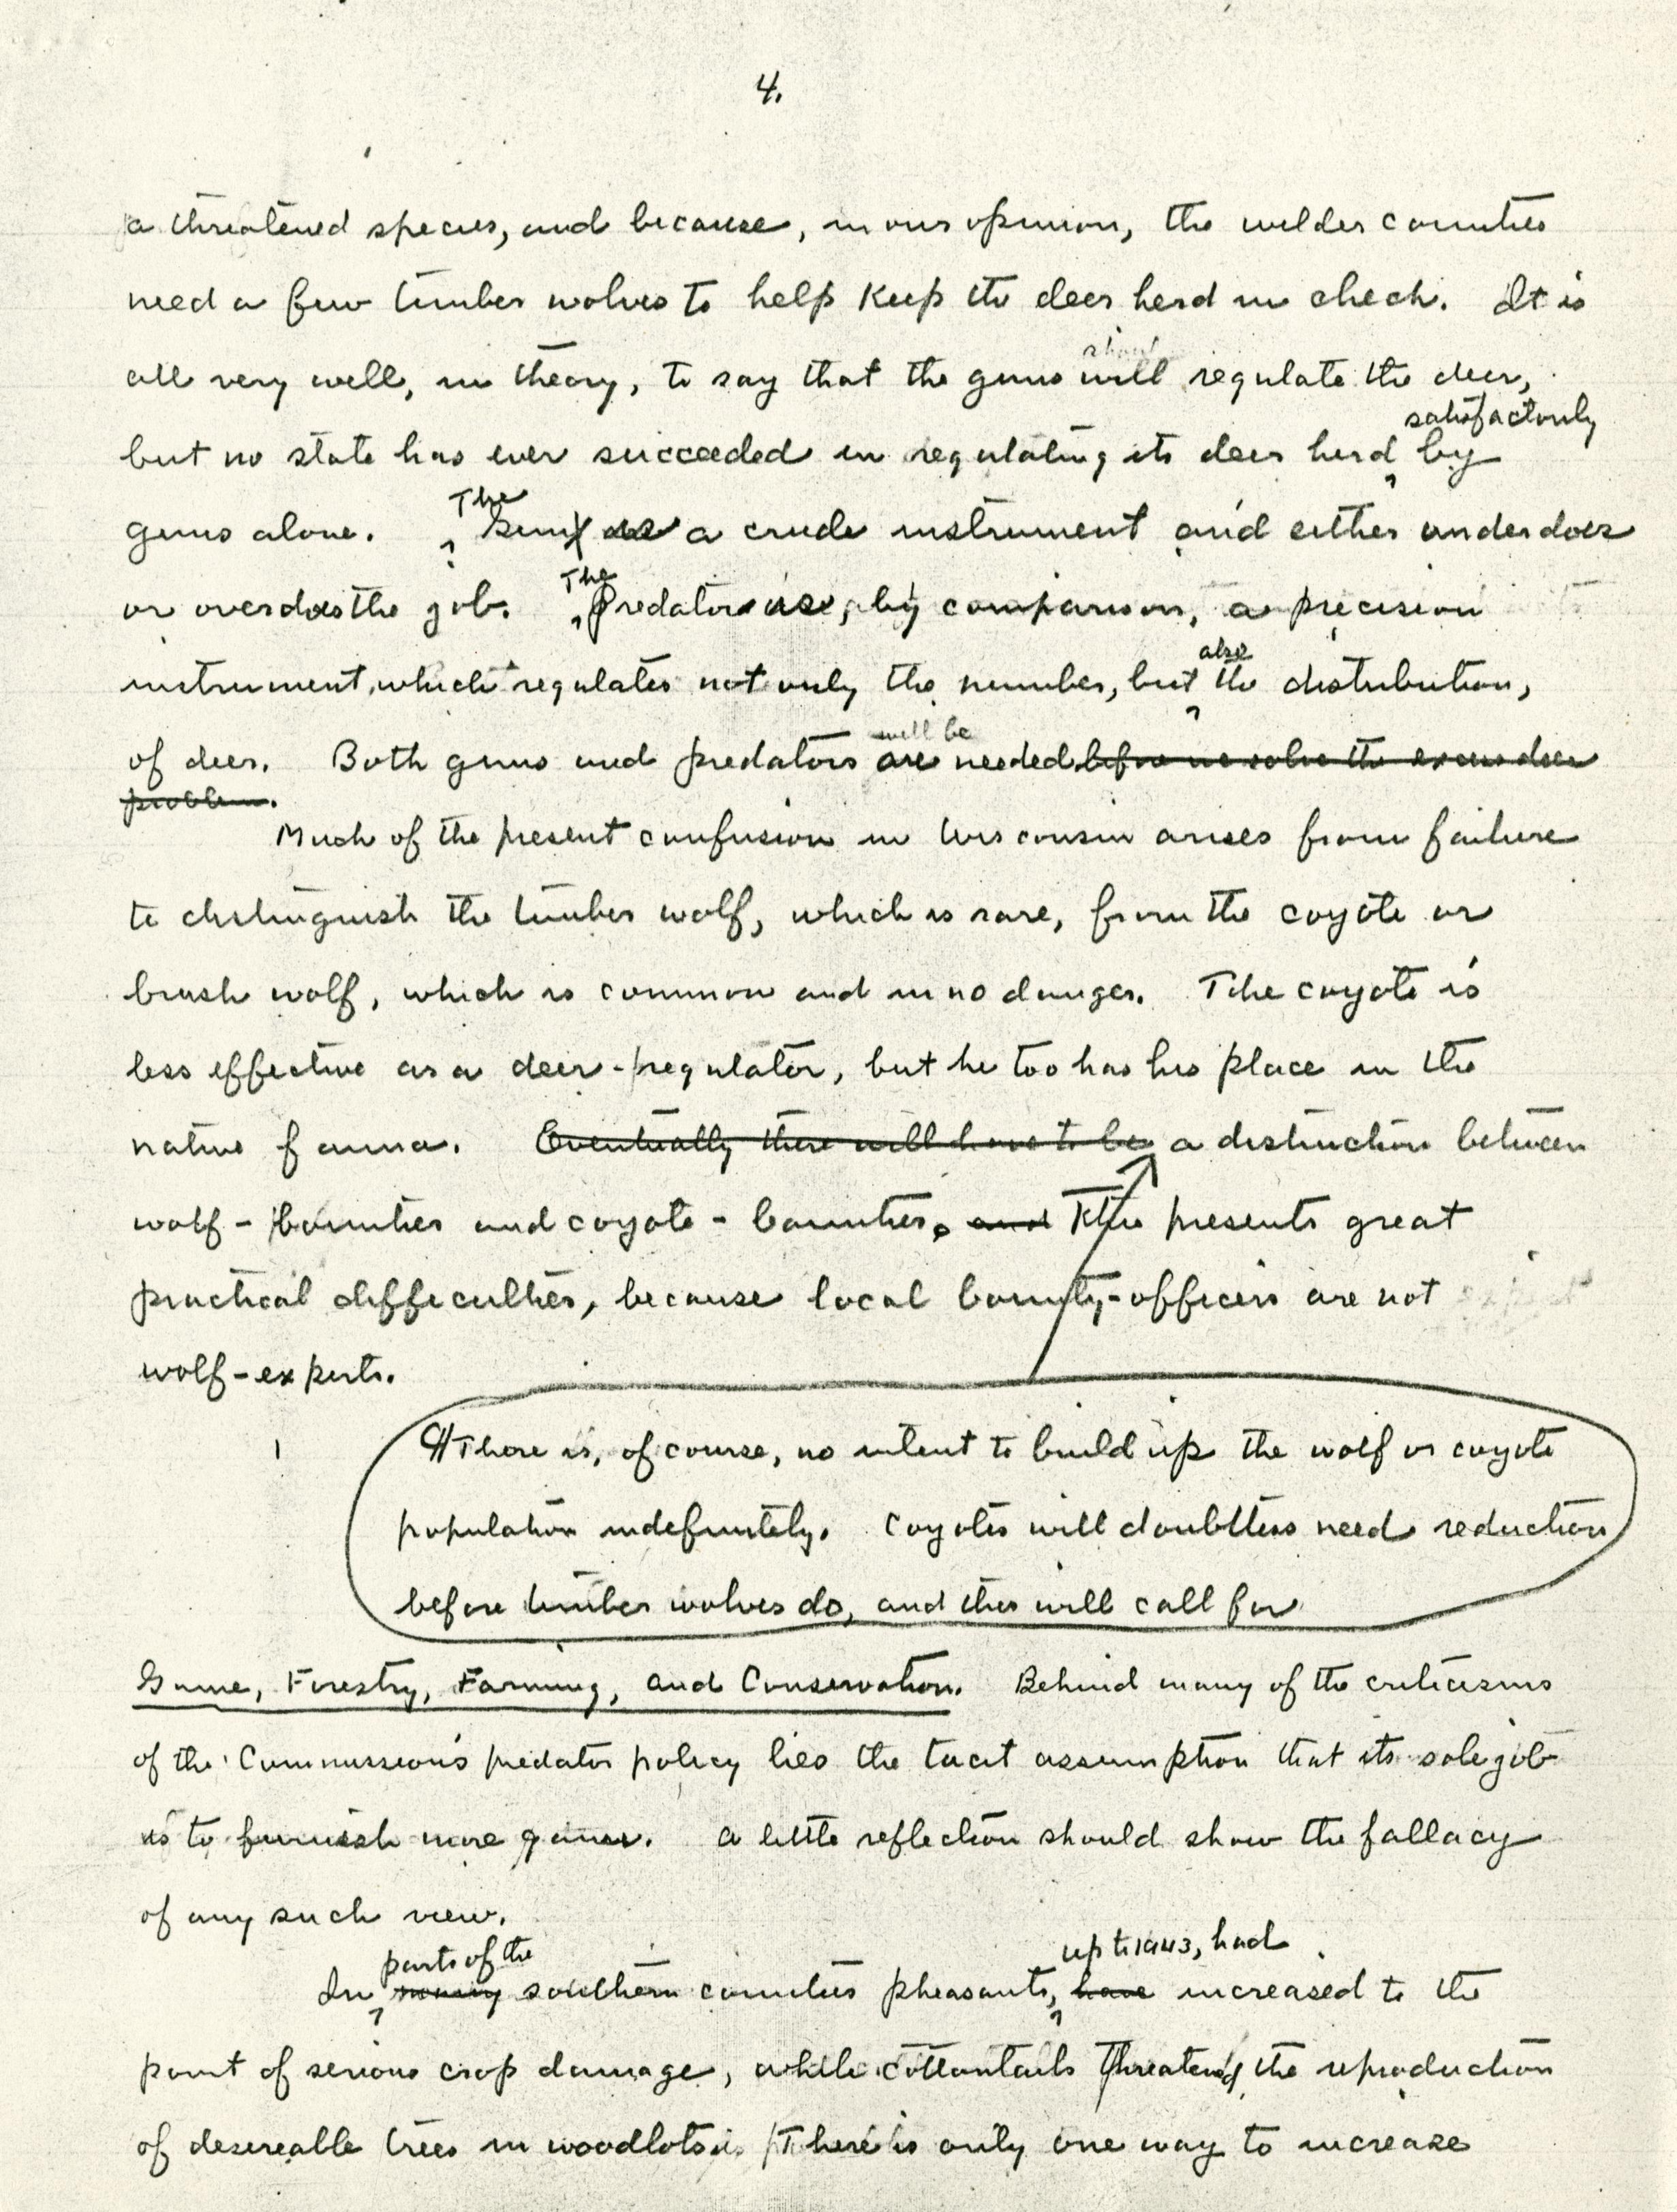 4.
a threatened species, and because, in our opinion, the wilder counties
need a few timber wolves to help keep the deer herd in check. It is
all very well, in theory, to say that the guns will regulate the deer,
satisfactorily
but no state has ever succeeded in regulating its deer herd by
The
guns alone. Gun is a crude instrument and either underdoes
The
or overdoes the job. Predator is, by comparison, a precision
also
instrument, which regulates not only the number, but the distribution,
will be
of deer. Both guns and predators are needed before we solve the excess deer
problem.
Much of the present confusion in Wisconsin arises from failure
to distinguish the timber wolf, which is rare, from the coyote or
brush wolf, which is common and in no danger. The coyote is
less effective as a deer-regulator, but he too has his place in the
native fauna. Eventually there will have to be a distinction between
wolf-bounties and coyote-bounties. and This presents great
practical difficulties, because local bounty-officers are not
wolf-experts.
¶There is, of course, no intent to build up the wolf or coyote
population indefinitely. Coyotes will doubtless need reduction
before timber wolves do, and this will call for
Game, Forestry, Farming, and Conservation. Behind many of the criticisms
of the Commission's predator policy lies the tacit assumption that its sole job
is to furnish more game. A little reflection should show the fallacy
of any such view.
parts of the up to 1943, had
In many southern counties pheasants, have increased to the
point of serious crop damage, while cottontails threatened the reproduction
of desireable trees in woodlots. There is only one way to increase